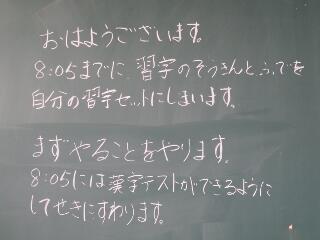 おはようございます。
8:05までに、習字のぞうきんと、ふでを
自分の習字セットにしまいます。
まずやることをやります。
8:05には漢字テストができるように
してせきにすわります。